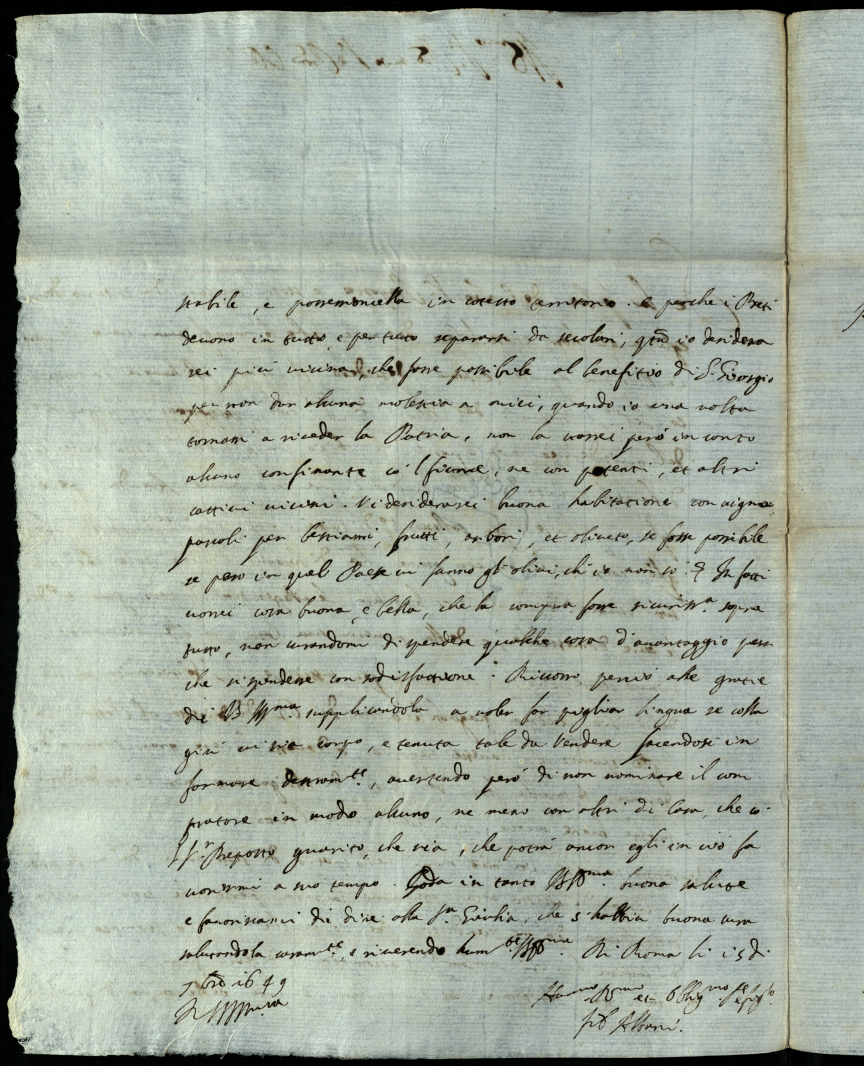 stabile, e possessioncella in cotesto territorio. e perche i Preti
devono in tutto, e per tutto separarsi da secolari, io desidera
rei più vicina, che fosse possibile al benefitio di S. Giorgio
per non dar alcuna molestia a amici, quando io una volta
tornassi a riveder la Patria, non la vorrei però in conto
alcuno confinante co 'l fiume, ne con potenti, et altri
cattivi vicini. Vi desiderarei buona habitatione con vigna,
pascoli per bestiami, frutti, arbori, et oliveto, se fosse possibile
se pero in quel Paese vi fanno gl' olivi, ch' io non so. In fatti
vorrei cosa buona, e bella, che la compra fosse sicuriss.a sopra
tutto, non curandomi di spendere qualche cosa d'avantaggio pur
che si spendesse con sodisfattione. Ricorro perciò alle gratie
di supplicandola a voler far pigliar lingua se costa
giù vi sia corpo, e tenuta tale da vendere facendosi in
formare avertendo però di non nominare il com
pratore in modo alcuno, ne meno con altri di Casa, che co 'l
S.r Preposto guarito, che sia, che potrà ancor egli in ciò fa
vorirmi a suo tempo. Goda in tanto buona salute
e favoriscami di dire alla S.ra Giulia, che s' habbia buona cura
salutandola caram.te, e riverendo hum.te Di Roma li 15 di
7bre 1649
et Obblig.mo
Albani.